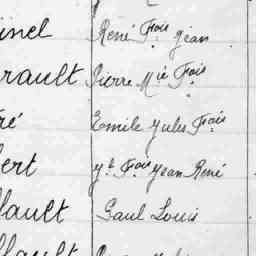 inel René Fois Jean
rault Pierre Mie Fois
ré Emile Jules Fois
bert Fois Jean René
llault Paul Louis